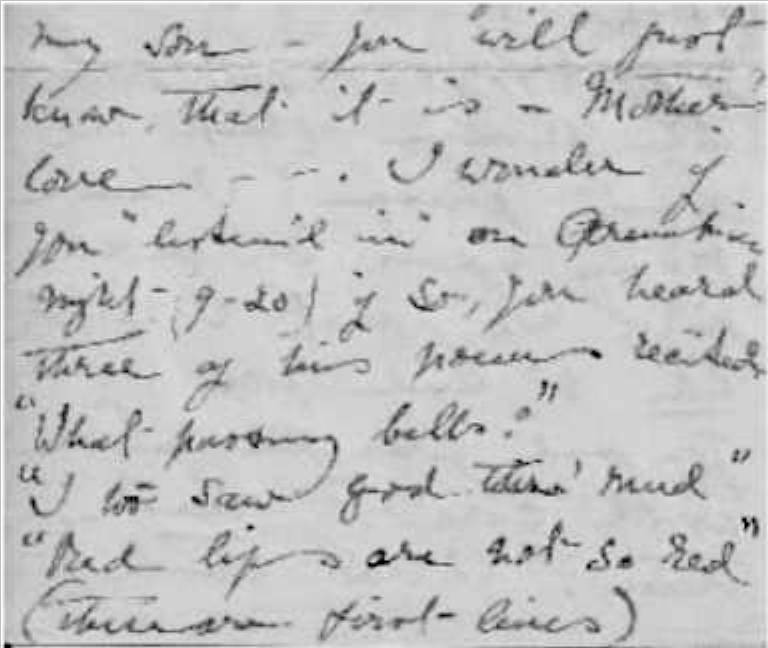 my son - you will just
know, that it is a Mother's
love - - - . I wonder if
you "listened in" on Armistice
night - (9-20) if so, you heard
three of his poems recited
"What passing bells?"
"I too saw God thro' mud"
"Red lips are not so red"
(these are first-lines)